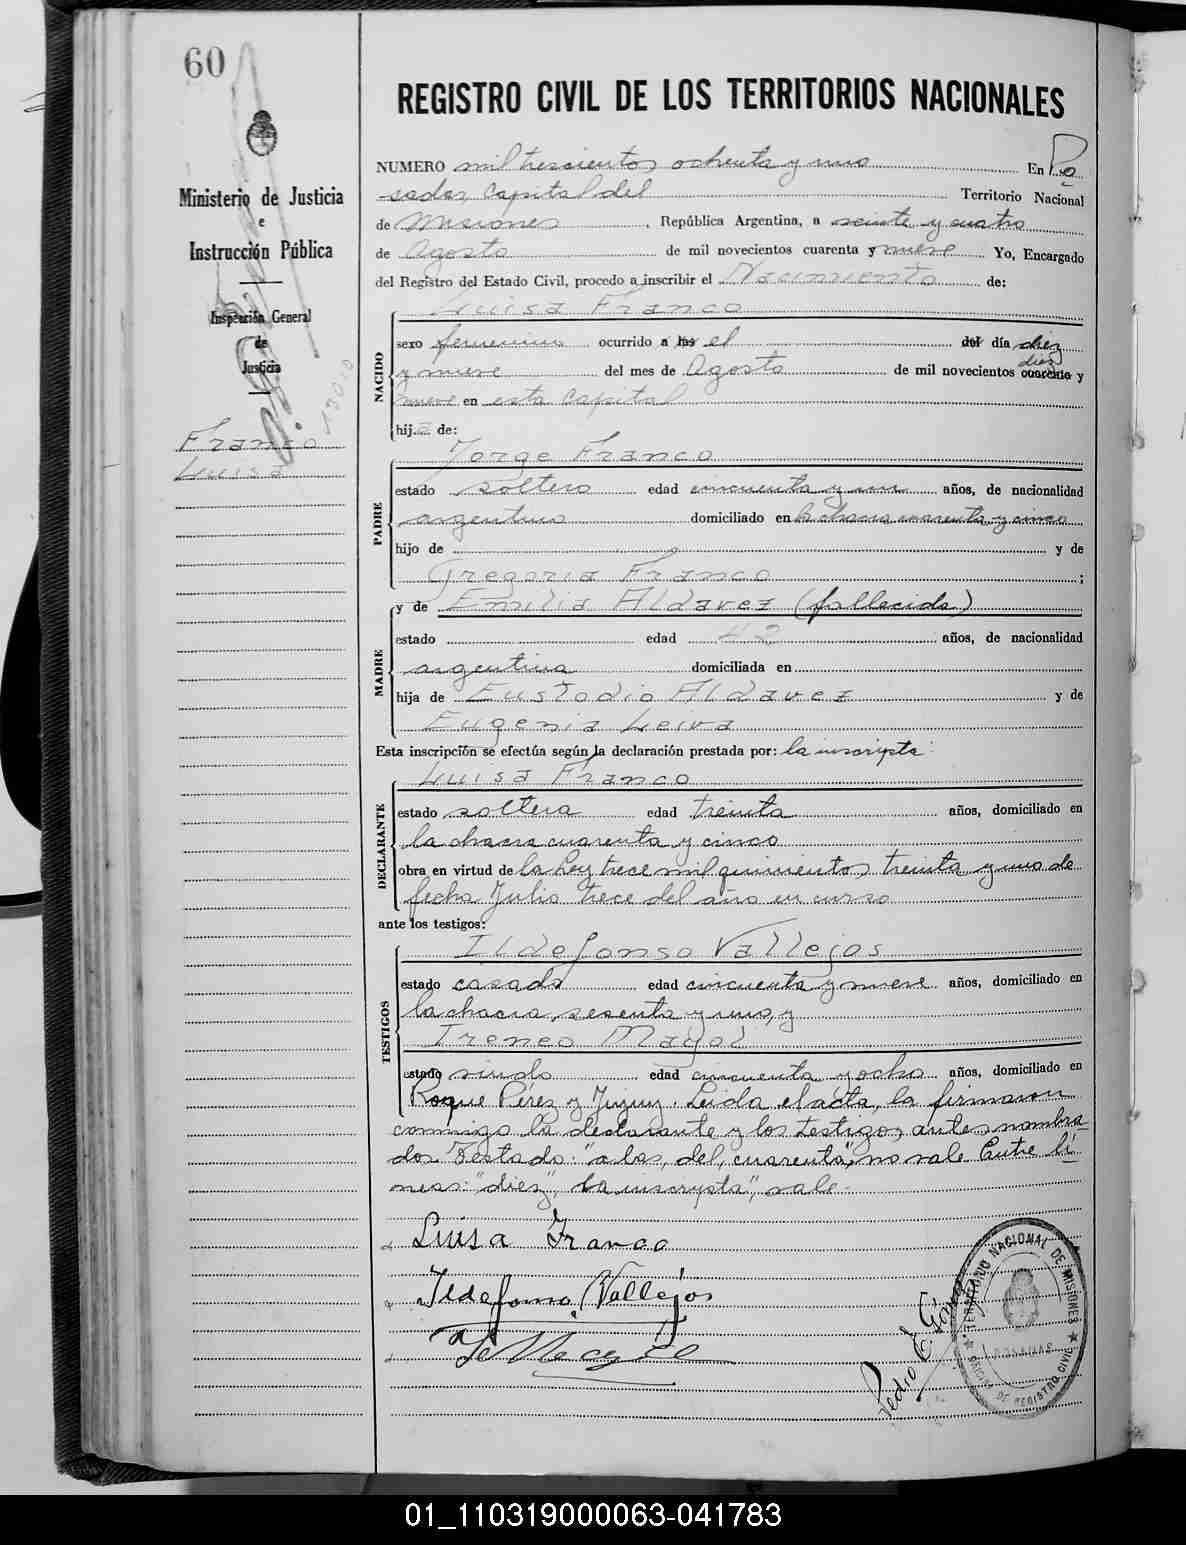 60
REGISTRO CIVIL DE LOS TERRITORIOS NACIONALES
Ministerio de Justicia
e
Instrucción Pública
Inspección General
de
Justicia
Franco
Luisa
NUMERO mil trescientos ochenta y uno En Po
sadas, Capital del Territorio Nacional
de Misiones, República Argentina, a veinte y cuatro
de Agosto de mil novecientos cuarenta y nueve Yo, Encargado
del Registro del Estado Civil, procedo a inscribir el Nacimiento de:
Luisa Franco
NACIDO
sexo femenino ocurrido a las el del día diez
y nueve del mes de Agosto de mil novecientos cuarenta diez y
nueve en esta Capital
hija de:
Jorge Franco
PADRE
estado soltero edad cincuenta y un años, de nacionalidad
argentino domiciliado en la chacra cuarenta y cinco
hijo de y de
Gregoria Franco ;
y de Emilia Aldavez (fallecida)
MADRE
estado edad 42 años, de nacionalidad
argentina domiciliada en
hija de Eustodio Aldavez y de
Eugenia Leiva
Esta inscripción se efectúa según la declaración prestada por: la inscripta:
Luisa Franco
DECLARANTE
estado soltera edad treinta años, domiciliado en
la chacra cuarenta y cinco
obra en virtud de la Ley trece mil quinientos treinta y uno de
fecha Julio trece del año en curso
ante los testigos:
Ildefonso Vallejos
TESTIGOS
estado casado edad cincuenta y nueve años, domiciliado en
la chacra, sesenta y uno, y
Ireneo
estado viudo edad cincuenta y ocho años, domiciliado en
Roque Pérez y Jujuy. Leída el acta, la firmaron
conmigo la declarante y los testigos antes nombra-
dos Testado: "a las, del, cuarenta", no vale Entre li-
neas: "diez", "la inscripta", vale.
Luisa Franco
Ildefonso Vallejos
Pedro E
TERRITORIO NACIONAL DE MISIONES
POSADAS
OFICINA DE REGISTRO CIVIL
01_110319000063-041783